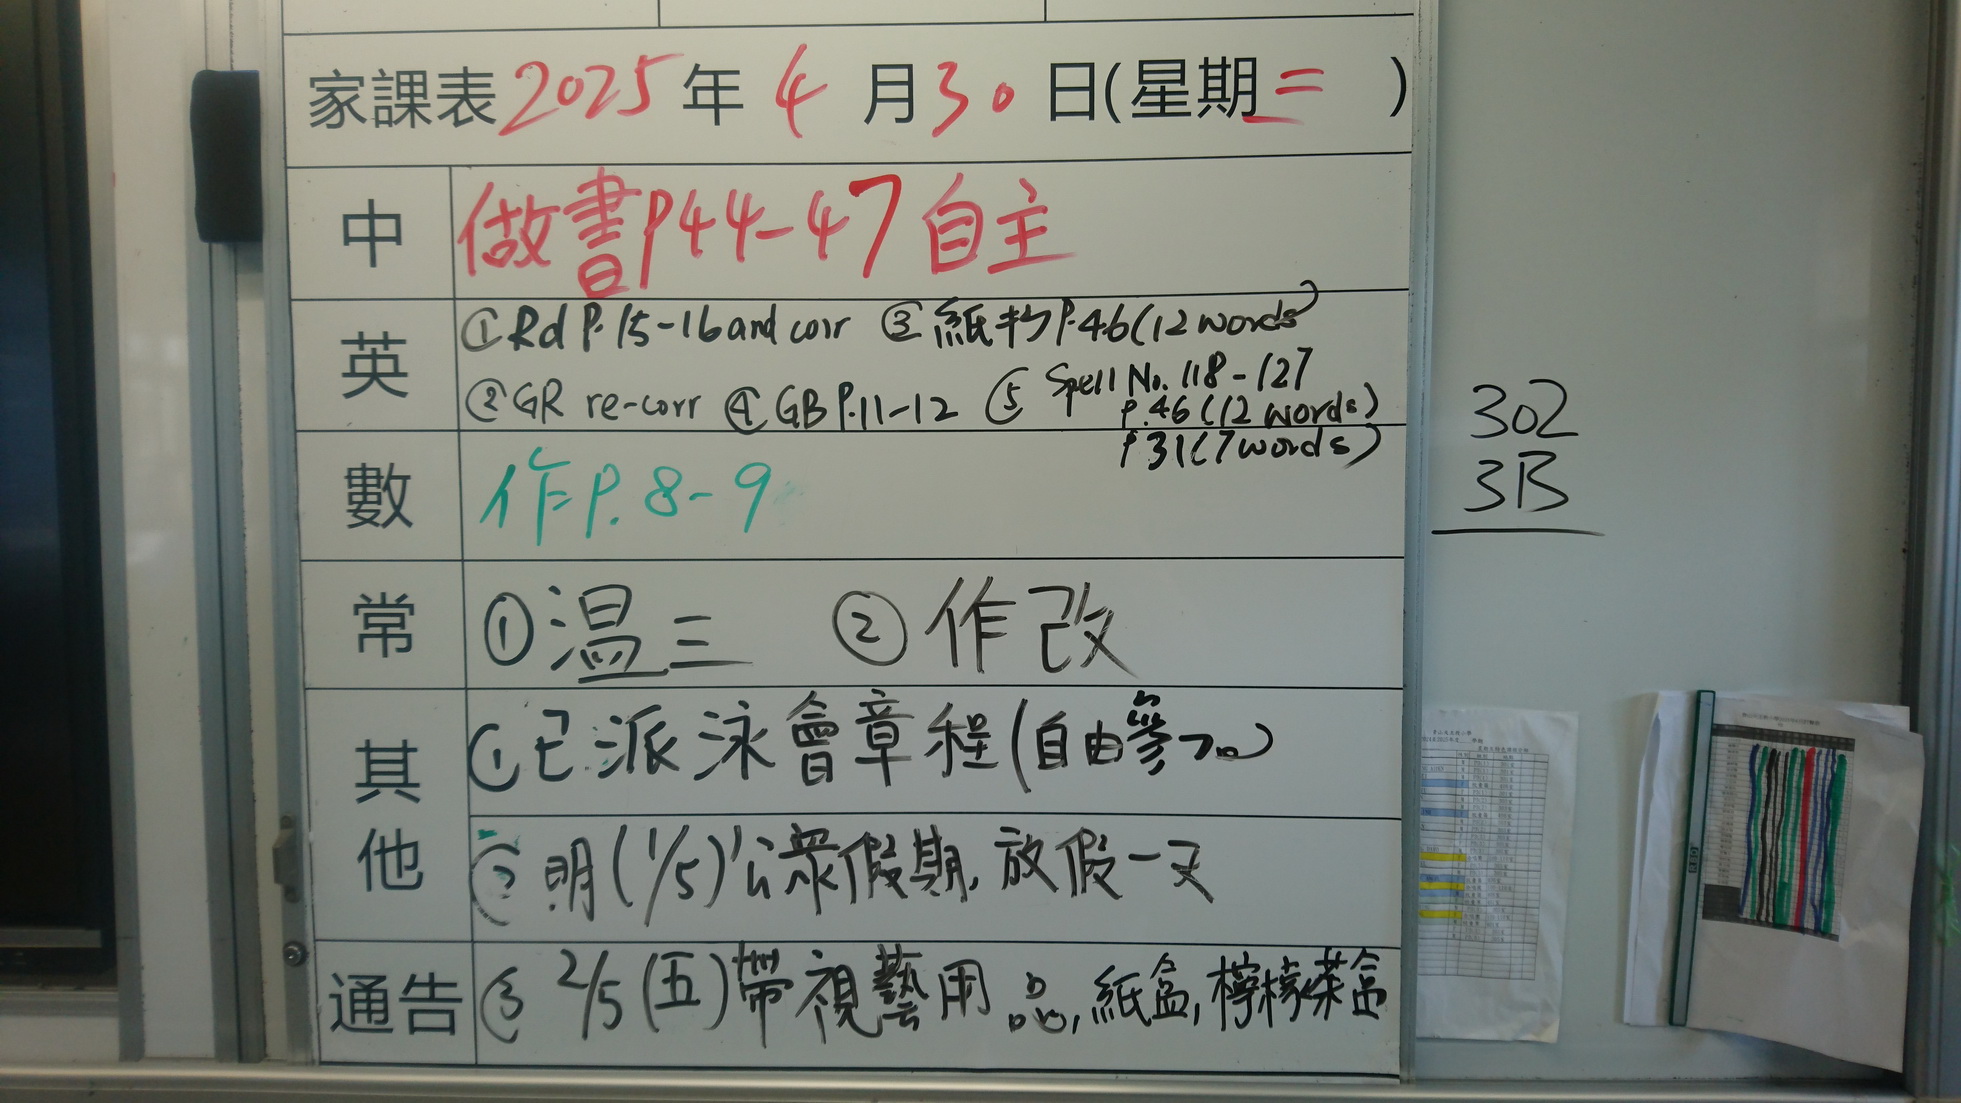 家課表 2025 年 4 月 30 日(星期三)
中 做書P44-47 自主
英 ①Rd P.15-16 and corr ③紙抄P.46(12 words)
②GR re-corr ④GB P.11-12 ⑤Spell No. 118-127
P.46(12 words)
P31(7words)
數 作P.8-9
常 ①温三 ②作改
其他 ①已派泳會章程(自由參加)
②明(1/5)公眾假期,放假一天
通告 ③2/5(五)帶視藝用品,紙盒,檸檬茶盒
302
3B